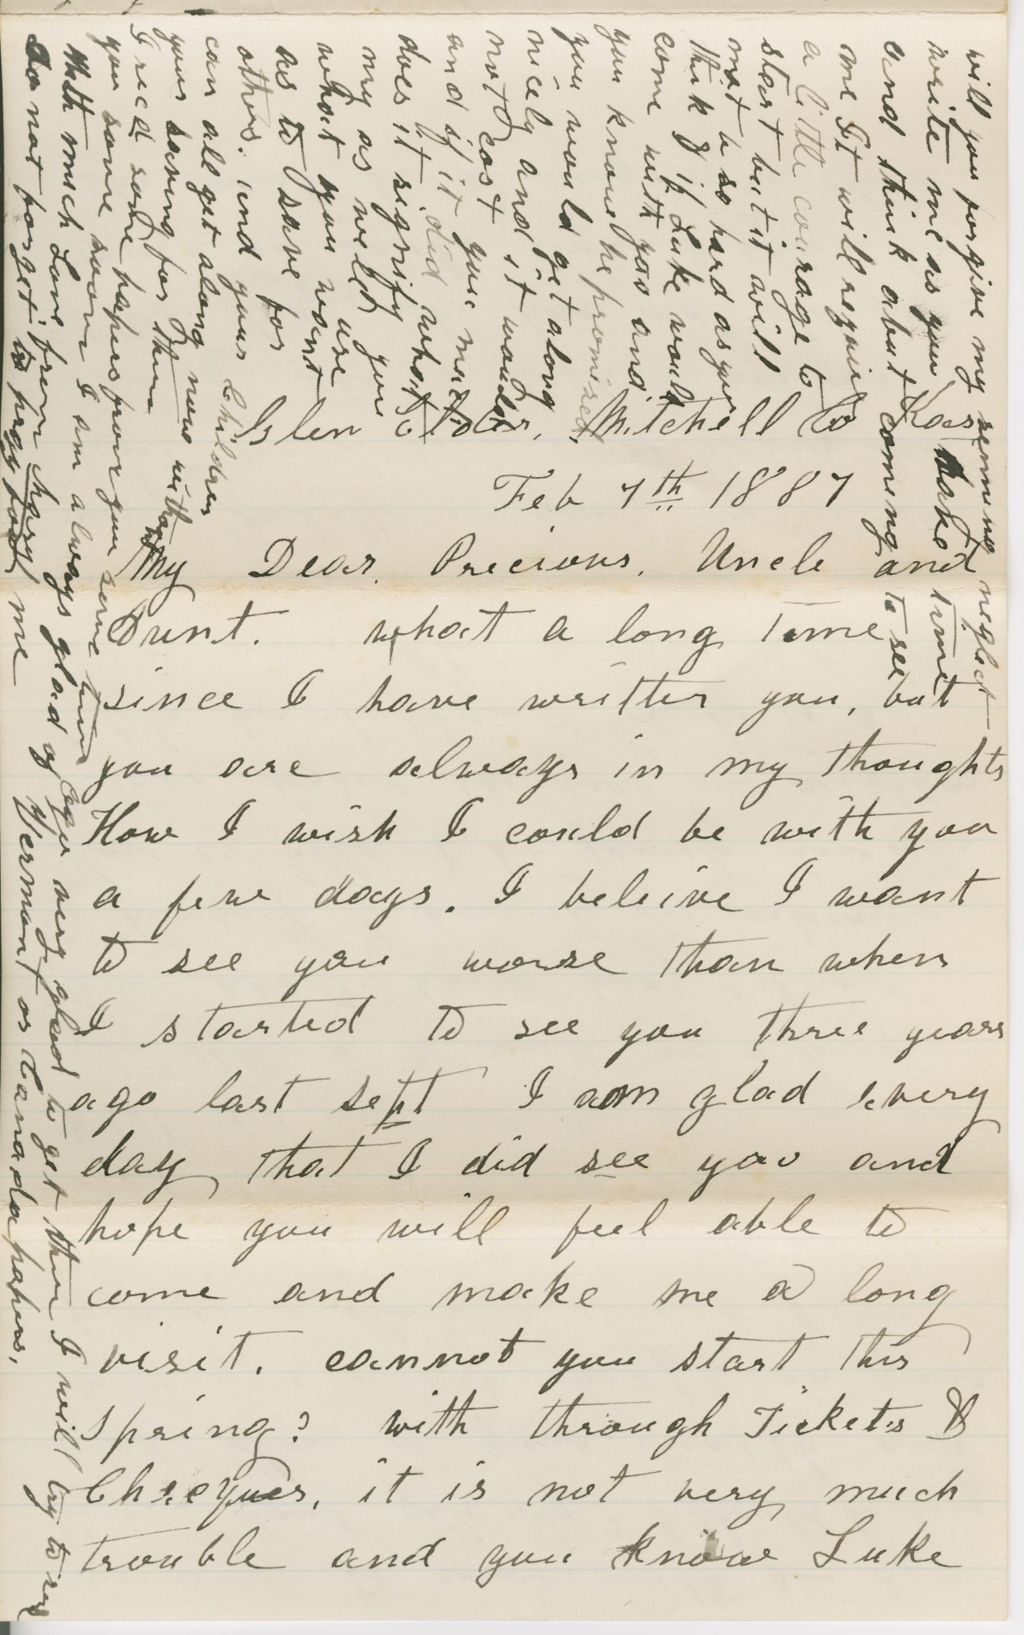 Glen Elder, Mitchell Co Kas
Feb 7th 1887
My Dear, Precious, Uncle and
Aunt. what a long time
since I have written you, but
you are always in my thoughts
How I wish I could be with you
a few days. I beleive I want
to see you worse than when
I started to see you three years
ago last Sept I am glad every
day that I did see you and
hope you will feel able to
come and make me a long
visit. cannot you start this
spring? with through Tickets &
Checques, it is not very much
trouble and you know Luke
will you forgive my seeming neglect
write me as you have time
and think about coming to see
me It will require
a little courage to
start but it will
not be so hard as you
think of if Luke would
come with you and
you know he promised
you would get along
nicely and it would
not cost you much
and if it did what
does it signify
my as well you
what you want use
as to save for
others. and your children
can all get along now without
your saving for them
I send some papers from
you some soon I am always glad of
with much Love from Mary
do not forget to pray for me
Vermont or Canada papers,
very glad to get them I will try to